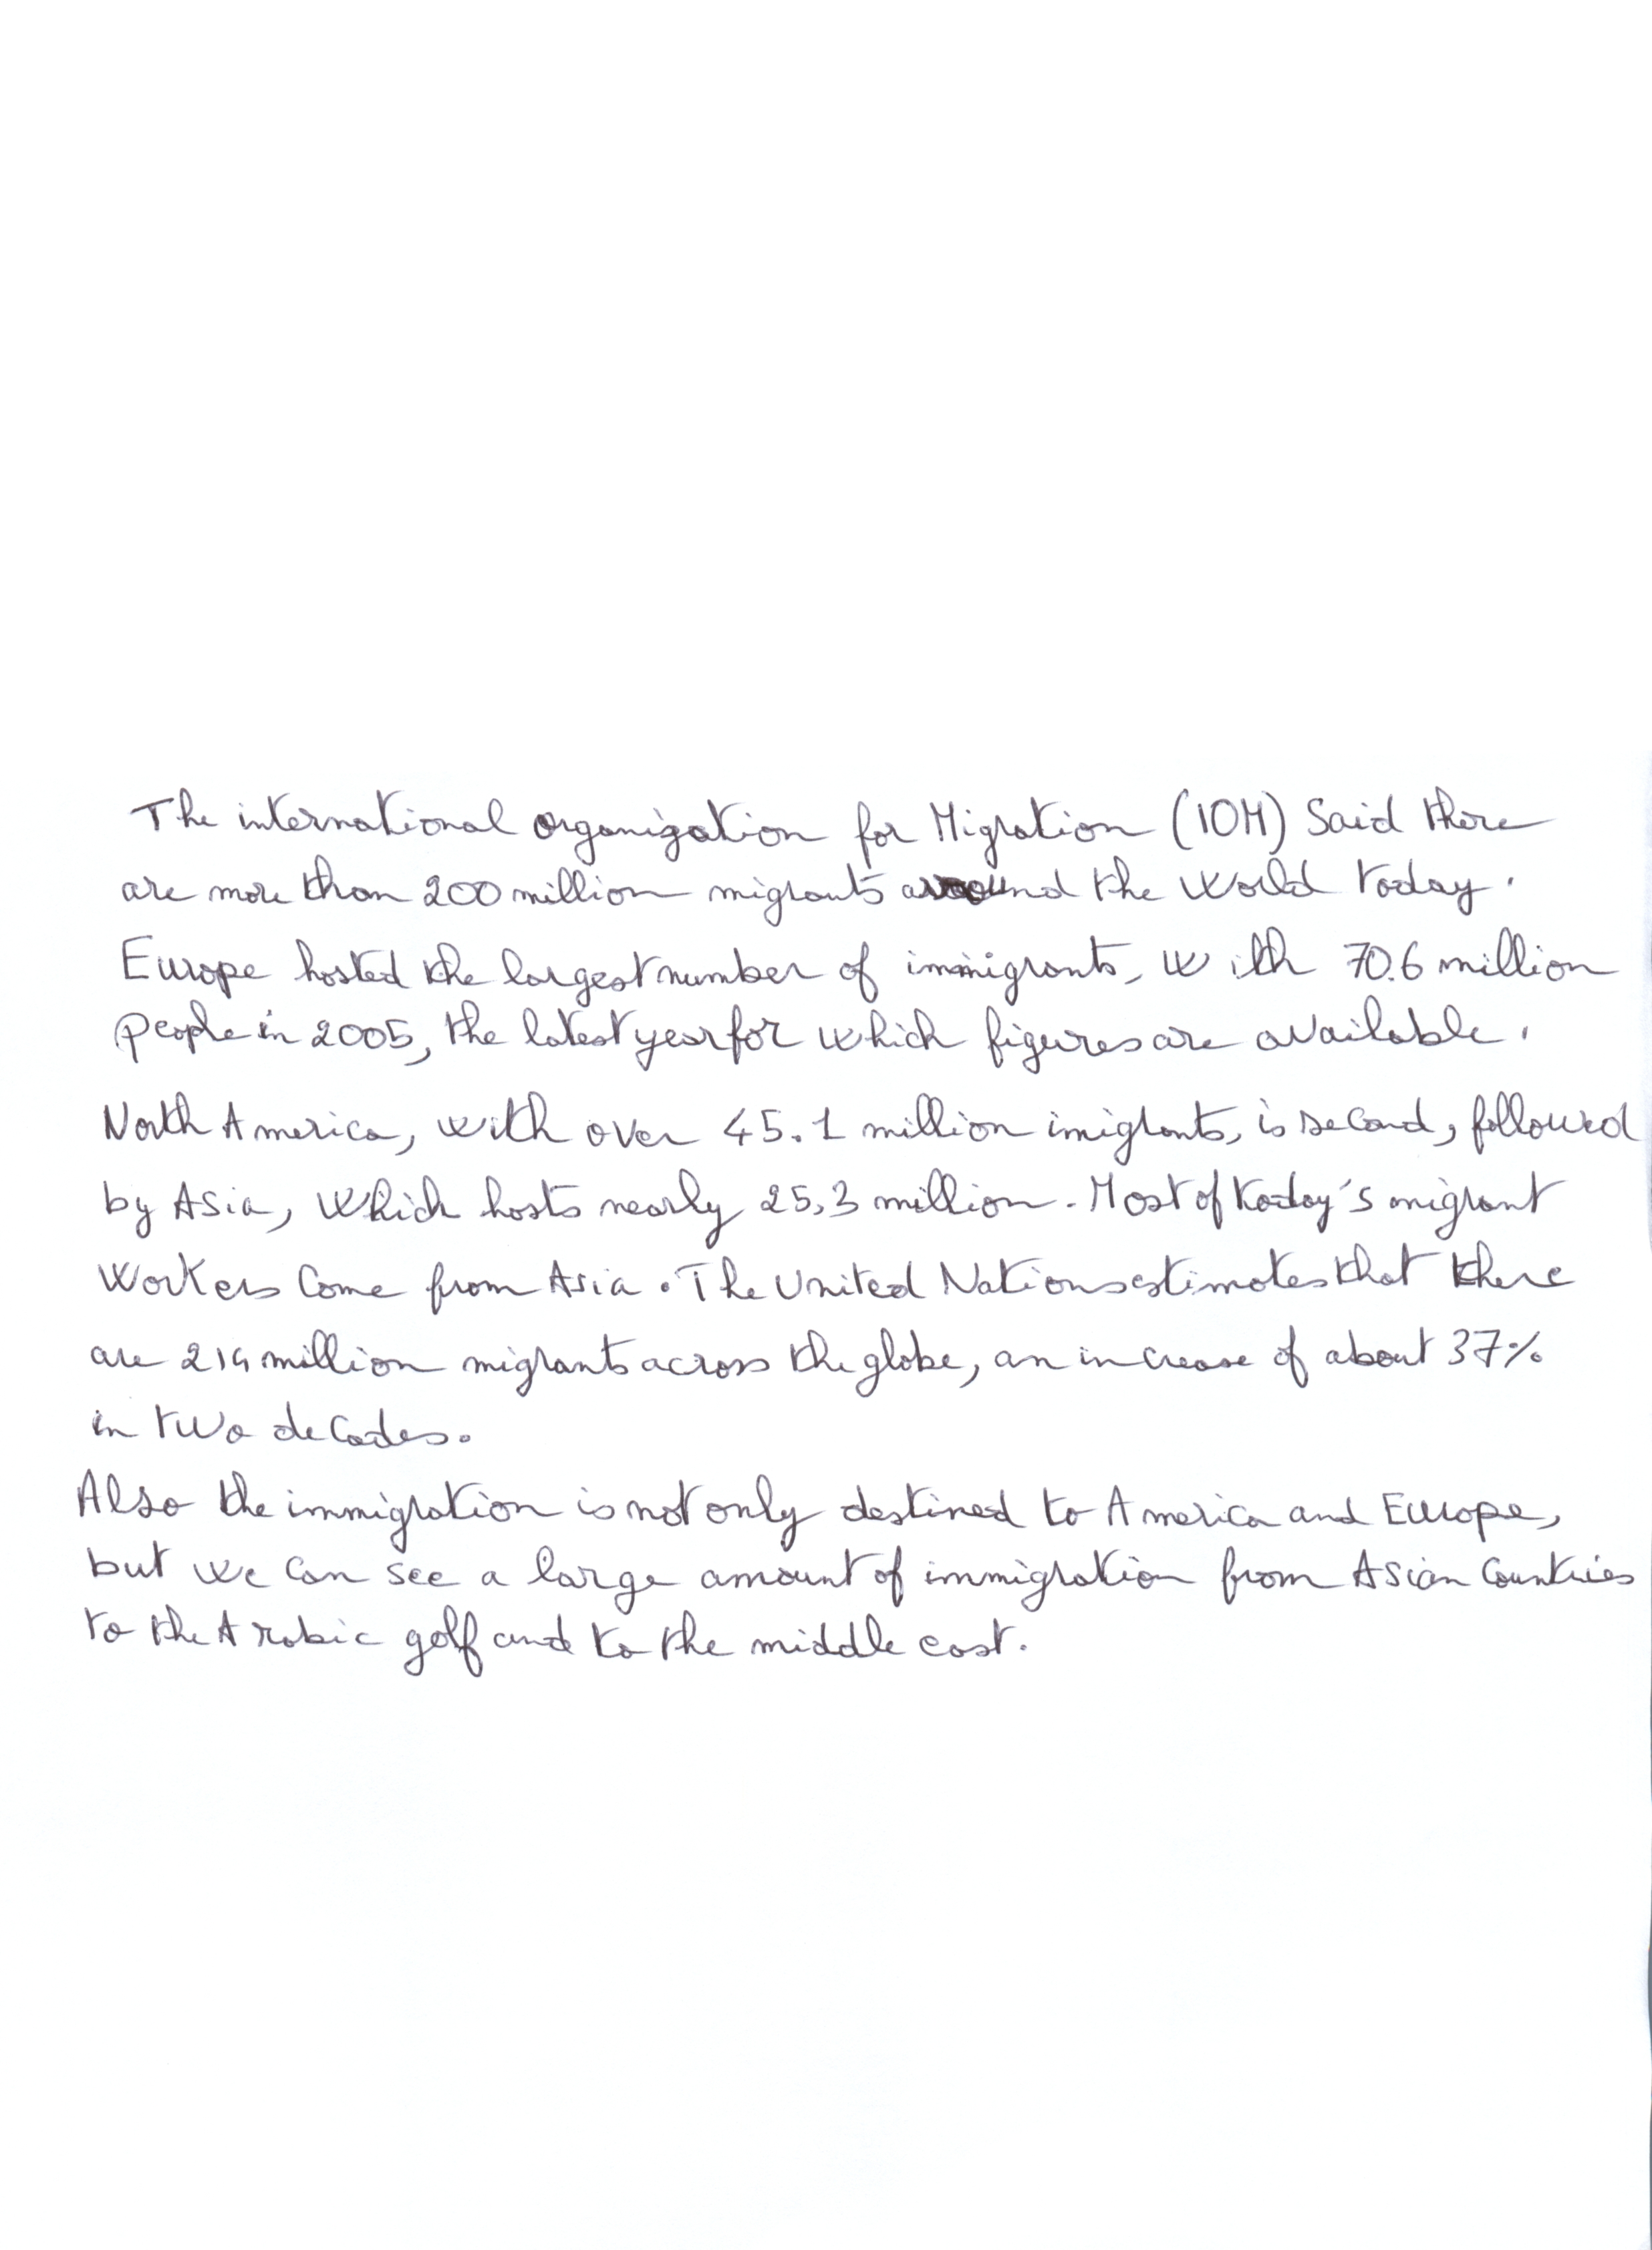 The international organization for Migration (IOM) Said there
are more than 200 million migrants around the World today.
Europe hosted the largest number of immigrants, with 70.6 million
people in 2005, the latest year for which figures are available.
North America, with over 45.1 million imigrants, is second, followed
by Asia, which hosts nearly 25,3 million. Most of today's migrant
Workers Come from Asia. The United Nations estimates that there
are 214 million migrants across the globe, an increase of about 37%
in two decades.
Also the immigration is not only destined to America and Europe,
but we can see a large amount of immigration from Asian Countries
to the Arabic golf and to the middle east.